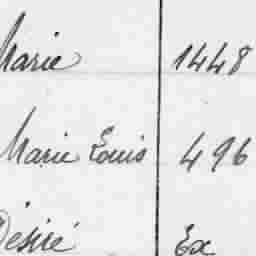 Marie 1448
Marie Louis 496
Désiré Ex